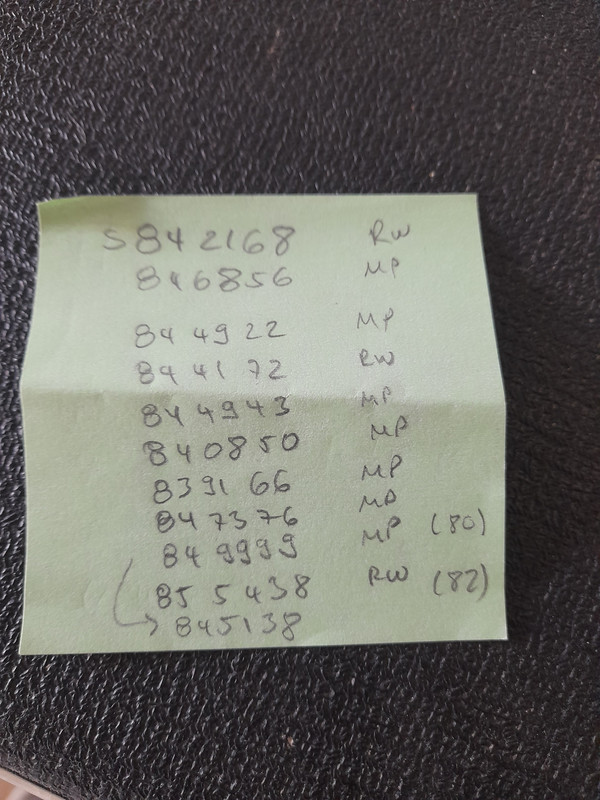 S842168 RW
846856 MP
844922 MP
844172 RW
844943 MP
840850 MP
839166 MP
847376 MP
849999 MP (80)
855438 RW (82)
845138